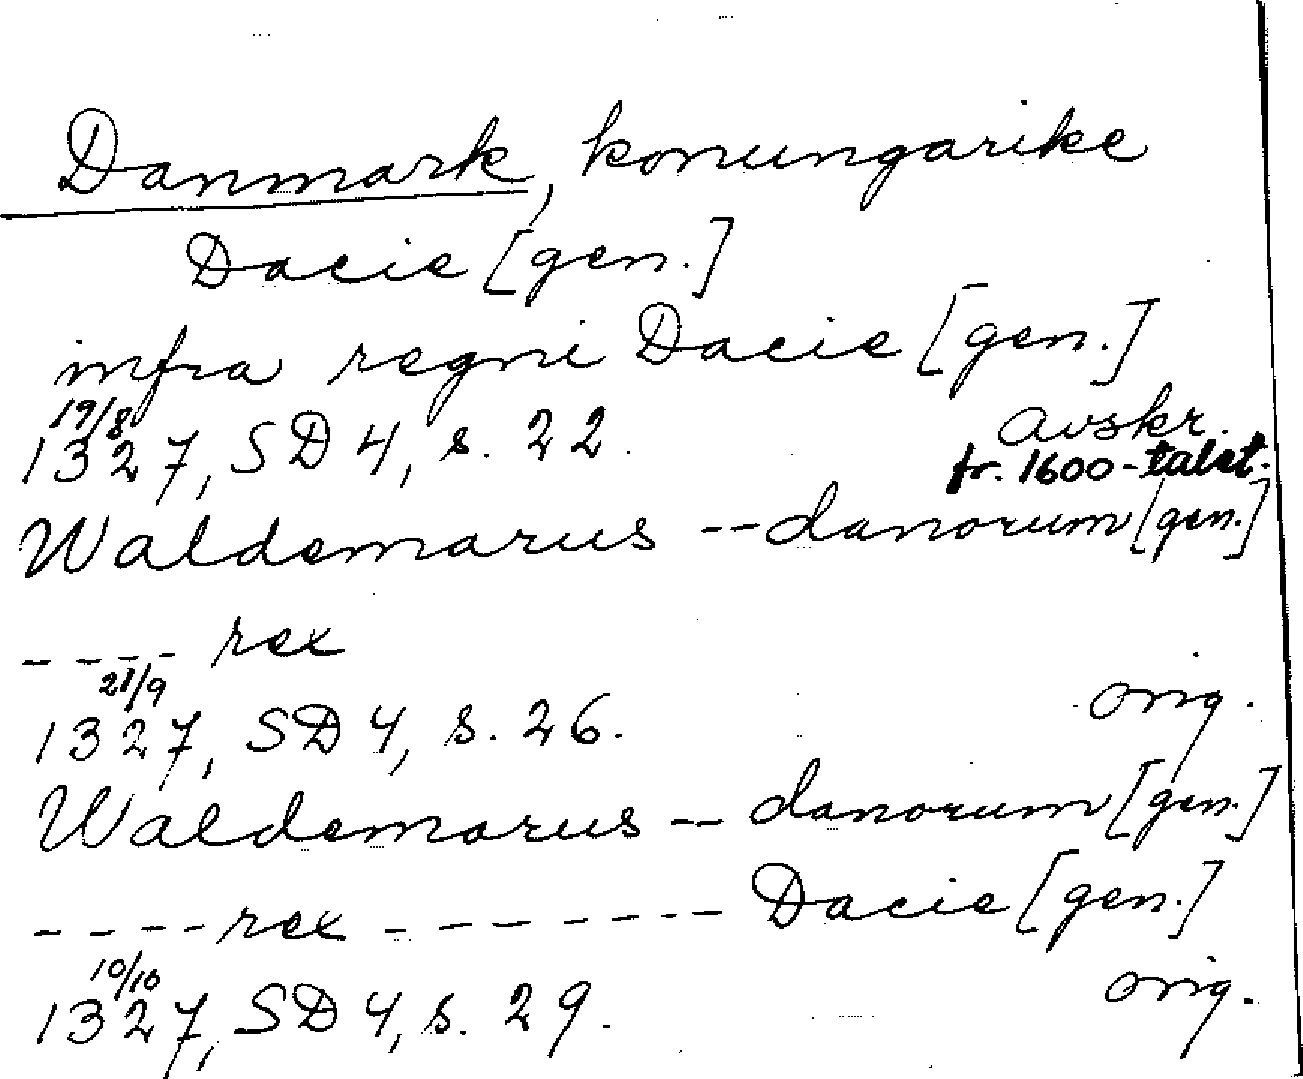 Danmark, konungarike
Dacie [gen.]
infra regni Dacie [gen.]
19/8
1327, SD 4, s. 22. avskr.
fr. 1600-talet.
Waldemarus -- danorum [gen.]
---- rex
21/9
1327, SD 4, s. 26. orig.
Waldemarus -- danorum [gen.]
---- rex ------- Dacie [gen.]
10/10
1327, SD 4, s. 29. orig.